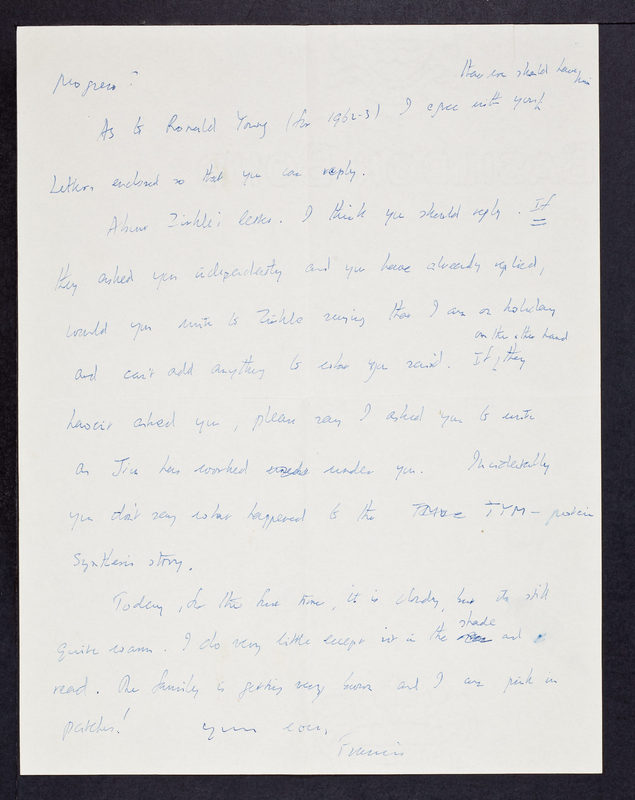 progress?
that we should have him
As to Ronald Young (for 1962-3) I agree with you
Letters enclosed so that you can reply.
About Zinkle's letter. I think you should reply. If
they asked you independently and you have already replied,
would you write to Zinkle saying that I am on holiday
on the other hand
and can't add anything to what you said. If, they
haven't asked you, please say I asked you to write
as Jim has worked under you. Incidentally
you don't say what happened to the TYM - protein
synthesis story.
Today, for the first time, it is cloudy, but its still
shade
quite warm. I do very little except sit in the and
read. The family is getting very brown and I am pink in
patches!
Yours ever,
Francis